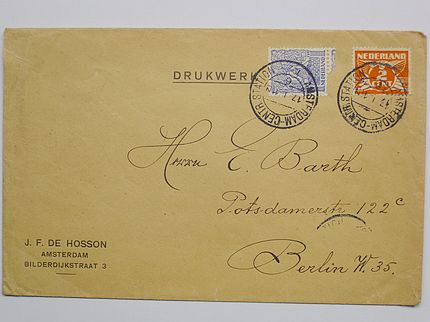 DRUKWERK
NEDERLAND
2
CENT
AMSTERDAM-CENTR.STATION
AMSTERDAM-CENTR.STATION
Herrn E. Barth
Potsdamerstr 122c
Berlin W. 35.
J. F. DE HOSSON
AMSTERDAM
BILDERDIJKSTRAAT 3